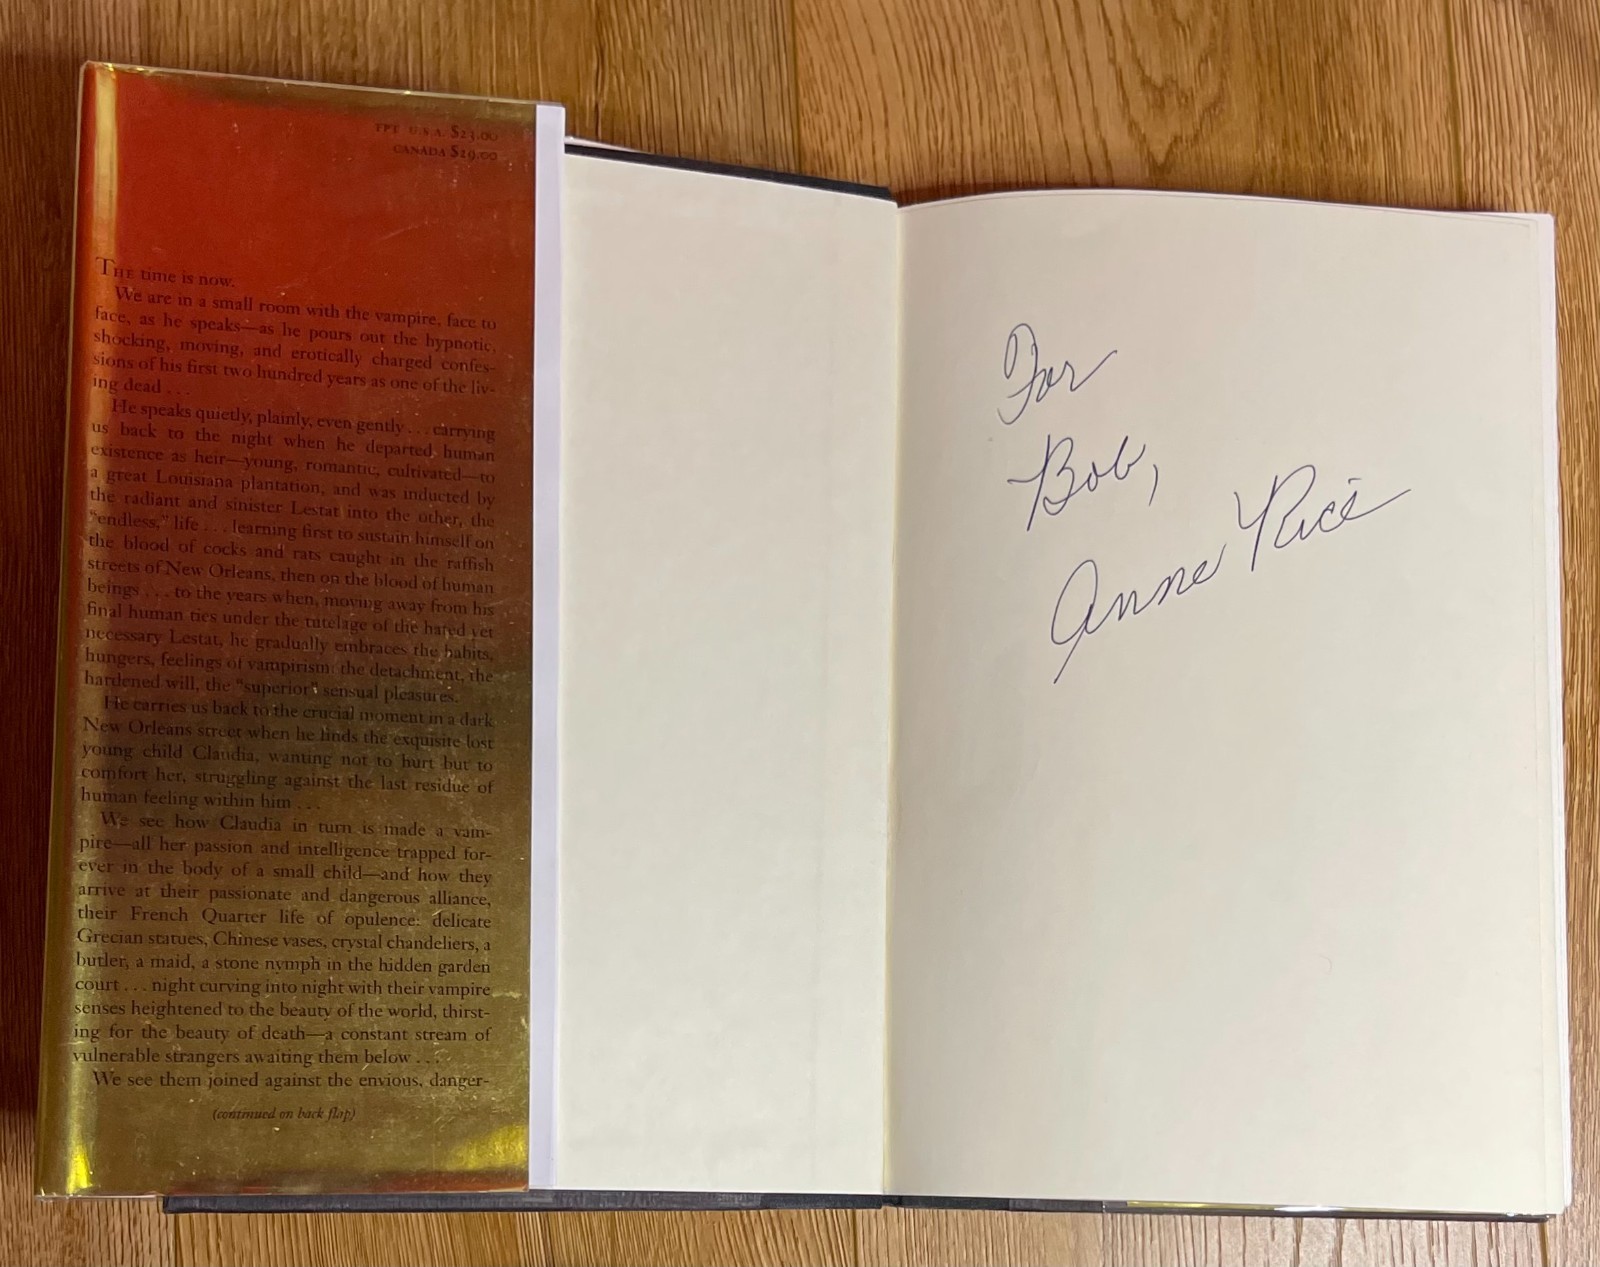 FPT U.S.A. $23.00
CANADA $29.00
THE time is now.
We are in a small room with the vampire, face to
face, as he speaks—as he pours out the hypnotic,
shocking, moving, and erotically charged confes-
sions of his first two hundred years as one of the liv-
ing dead . . .
He speaks quietly, plainly, even gently . . . carrying
us back to the night when he departed human
existence as heir—young, romantic, cultivated—to
a great Louisiana plantation, and was inducted by
the radiant and sinister Lestat into the other, the
"endless," life . . . learning first to sustain himself on
the blood of cocks and rats caught in the raffish
streets of New Orleans, then on the blood of human
beings . . . to the years when, moving away from his
final human ties under the tutelage of the hated yet
necessary Lestat, he gradually embraces the habits,
hungers, feelings of vampirism: the detachment, the
hardened will, the "superior" sensual pleasures.
He carries us back to the crucial moment in a dark
New Orleans street when he finds the exquisite lost
young child Claudia, wanting not to hurt but to
comfort her, struggling against the last residue of
human feeling within him . . .
We see how Claudia in turn is made a vam-
pire—all her passion and intelligence trapped for-
ever in the body of a small child—and how they
arrive at their passionate and dangerous alliance,
their French Quarter life of opulence: delicate
Grecian statues, Chinese vases, crystal chandeliers, a
butler, a maid, a stone nymph in the hidden garden
court . . . night curving into night with their vampire
senses heightened to the beauty of the world, thirst-
ing for the beauty of death—a constant stream of
vulnerable strangers awaiting them below . . .
We see them joined against the envious, danger-
(continued on back flap)
For
Bob,
Anne Rice